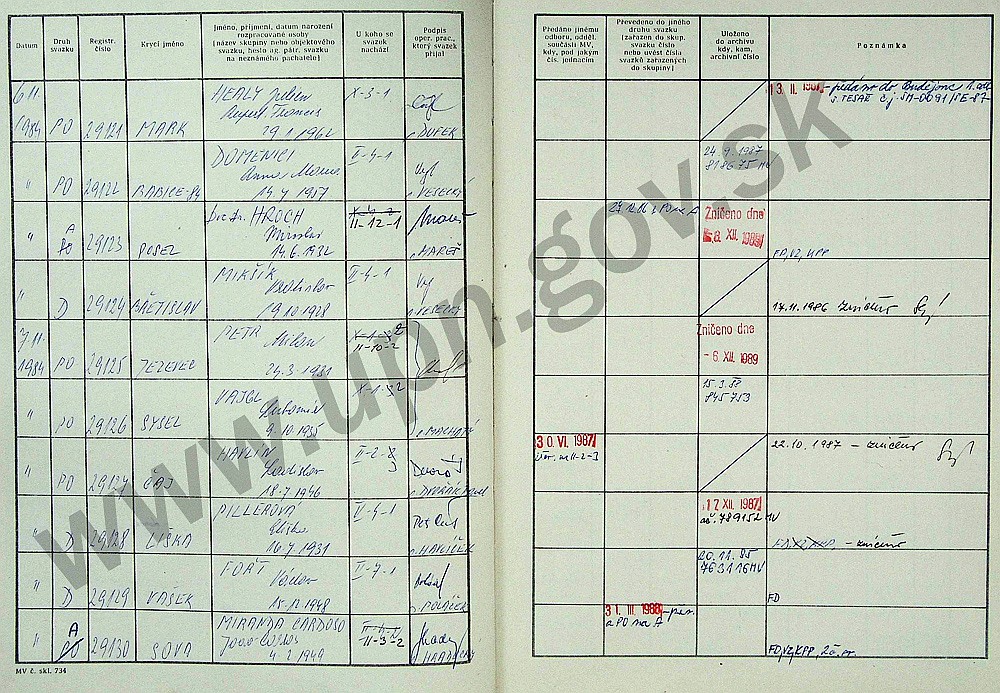 Datum
Druh
svazku
Registr.
číslo
Krycí jméno
Jméno, příjmení, datum narození
rozpracované osoby
(název skupiny nebo objektového
svazku, heslo ag. pátr. svazku
na neznámého pachatele)
U koho se
svazek
nachází
Podpis
oper. prac.,
který svazek
přijal
Předáno jinému
odboru, odděl.
součásti MV,
kdy, pod jakým
čís. jednacím
Převedeno do jiného
druhu svazku
(zařazen do skup.
svazku číslo
nebo uvést čísla
svazků zařazených
do skupiny)
Uloženo
do archivu
kdy, kam,
archivní číslo
Poznámka
6 11.
1984 PO 29121 MARK
HEALY Julien
Rupert Francis
29 1 1962
X-3-1
DUPEK
13. II. 1987 - předáno do Budějovic
s. TESAŘ č.j. SM-0091/SE-87
" PO 29122 BABICE-84
DOMENICI
Anna Maria
14 7 1937
II-4-1
VESECKÝ
24. 9. 1987
818675 MV
" A
PO 29123 POSEL
Doc. Dr. HROCH
Miroslav
14. 6. 1932
II-12-1
MAREŠ
27. 12. 86 z PO na A
Zničeno dne
8. XII. 1989
FD, VZ, KPP
" D 29124 BŘETISLAV
MIKŠÍK
19 10 1928
II-4-1
VESECKÝ
14. 11. 1986 zničeno
7. 11.
1984 PO 29125 JEZEVEC
PETR
Milan
24. 3. 1931
II-10-2
Zničeno dne
- 6. XII. 1989
" PO 29126 SYSEL
VAJGL
Lubomír
9. 10 1935
X-1-32
MACHATÝ
15. 3. 88
845753
" PO 29127 ČAJ
HAVLÍN
Ladislav
18. 7 1946
II-2-3
DVOŘÁK
30. VI. 1987
22. 10. 1987 - zničeno
" D 29128 LIŠKA
PILLEROVÁ
16. 7 1931
II-4-1
HAVLÍČEK
17. XII. 1987
ač. 789152 MV
FD, VZ, KPP, - zničeno
" D 29129 VAŠEK
FOŘT
Václav
15. 12 1948
II-7-1
POLÁČEK
20. 11. 85
763116 MV
FD
" A
PO 29130 SOVA
MIRANDA CARDOSO
Joao Carlos
4 2 1949
II-3-2
HRADECKÝ
31. III. 1988
z PO na A
FD, VZ, KPP,
MV č. skl. 734
www.upn.gov.sk